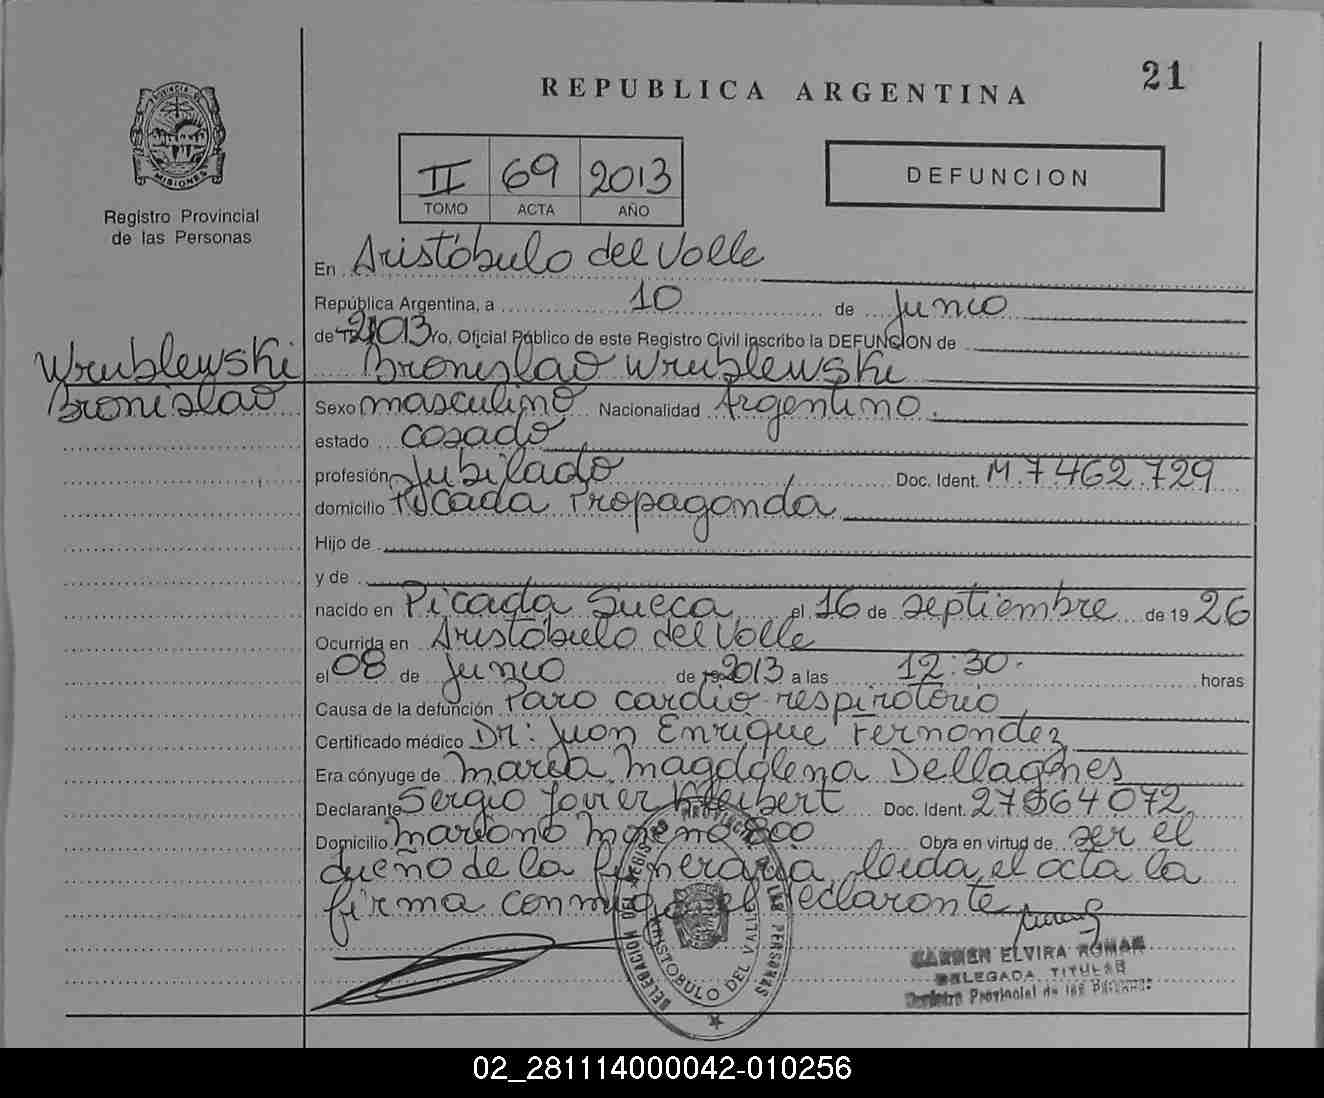 21
REPUBLICA ARGENTINA
PROVINCIA DE
MISIONES
Registro Provincial
de las Personas
II 69 2013
TOMO ACTA AÑO
DEFUNCION
En Aristóbulo del Valle
República Argentina, a 10 de Junio
de 2013 Yo, Oficial Público de este Registro Civil inscribo la DEFUNCION de
Wrublewski
Bronislao
Bronislao Wrublewski
Sexo masculino Nacionalidad Argentino.
estado casado
profesión Jubilado Doc. Ident. M.7.462.729
domicilio Picada Propaganda
Hijo de
y de
nacido en Picada Sueca el 16 de septiembre de 1926
Ocurrida en Aristóbulo del Valle
el 08 de Junio de 2013 a las 12:30. horas
Causa de la defunción Paro cardio-respiratorio
Certificado médico Dr: Juan Enrique Fernandez
Era cónyuge de María Magdalena Dellagnes
Declarante Sergio Javier Kleibert Doc. Ident. 27564072
Domicilio Mariano Moreno 800 Obra en virtud de ser el
dueño de la funeraria, leida el acta la
firma conmigo el declarante
DELEGACION DEL REGISTRO PROVINCIAL DE LAS PERSONAS
ARISTOBULO DEL VALLE
CARMEN ELVIRA ROMAN
DELEGADA TITULAR
Registro Provincial de las Personas
02_281114000042-010256